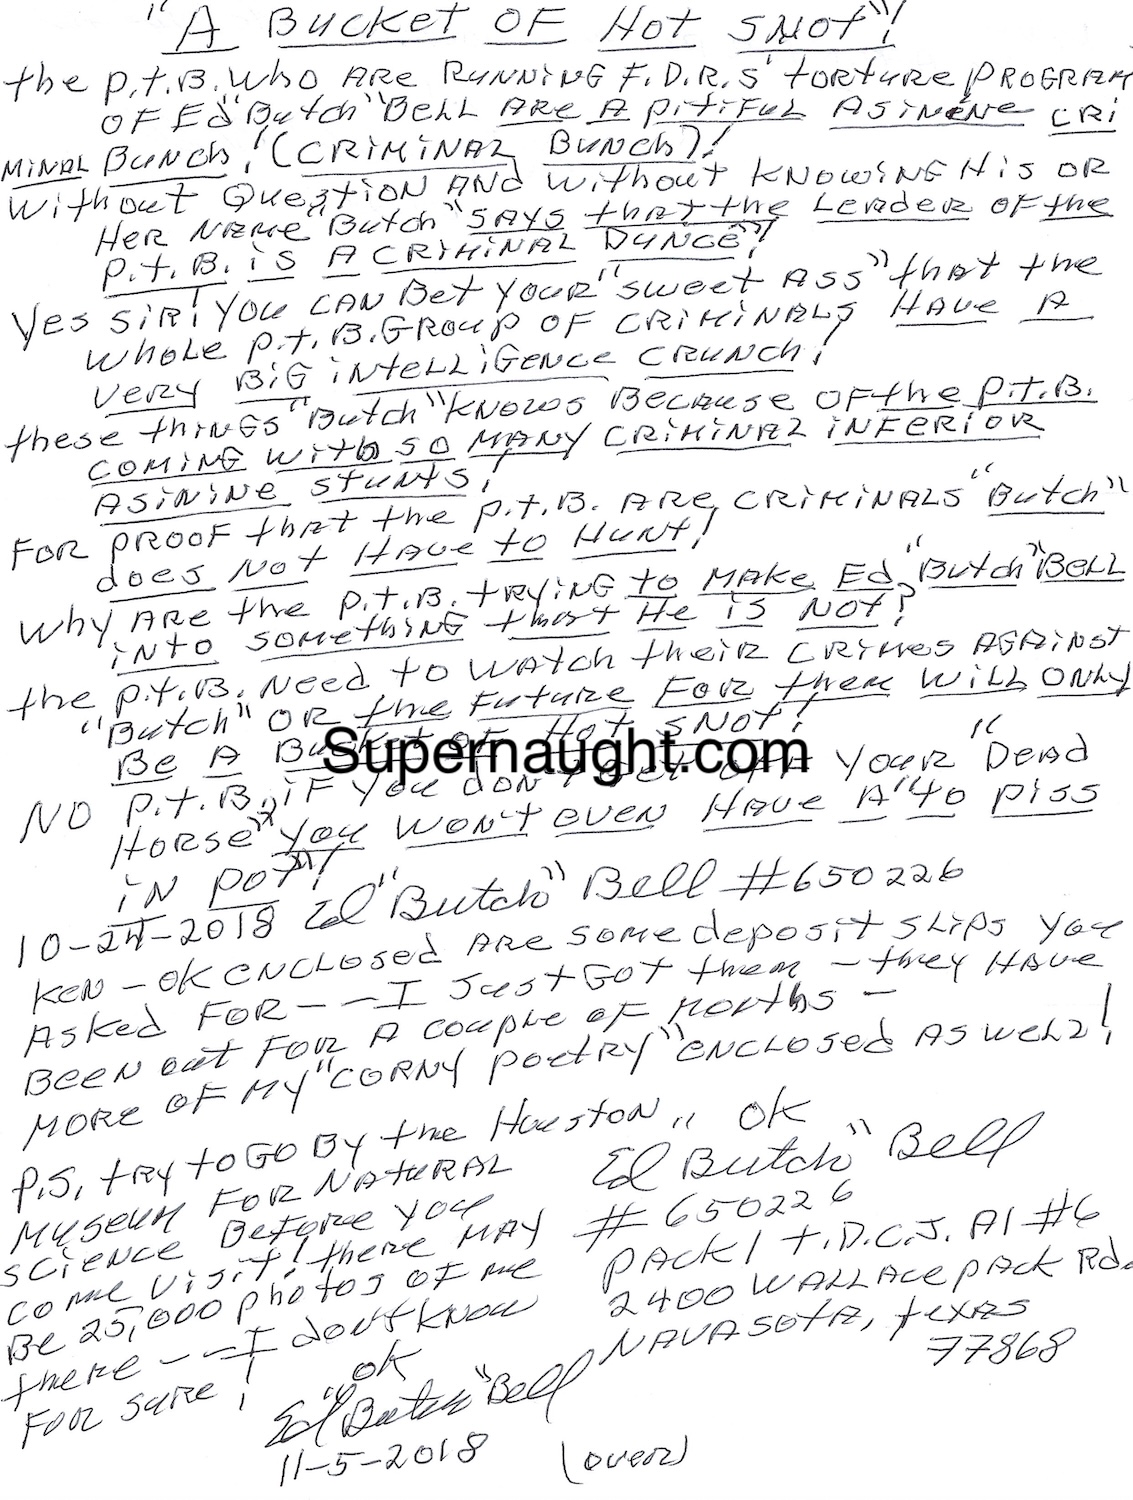 "A BUCKET OF HOT SNOT"!
the P.T.B. WHO ARE RUNNING F.D.R.S' TORTURE PROGRAM
OF Ed "Butch" BELL ARE A PITIFUL ASINENE CRI
MINAL BUNCH! (CRIMINAL BUNCH)!
WITHOUT QUESTION AND WITHOUT KNOWING HIS OR
HER NAME "Butch" SAYS that the LEADER OF the
P.T.B. IS A CRIMINAL DUNCE"!
YES SIR! YOU CAN BET YOUR "SWEET ASS" that the
WHOLE P.T.B. GROUP OF CRIMINALS HAVE A
VERY BIG INTELLIGENCE CRUNCH!
these thINGS "Butch" KNOWS BECAUSE OF the P.T.B.
COMING WITH SO MANY CRIMINAL INFERIOR
ASININE STUNTS!
FOR PROOF that the P.T.B. ARE CRIMINALS "Butch"
does NOT HAVE to HUNT!
Why ARE the P.T.B. TRYING to MAKE Ed "Butch" BELL
INTO SOMETHING that HE IS NOT?
the P.T.B. NEED TO WATCH THEIR CRIMES AGAINST
"Butch" OR the FUTURE FOR them WILL ONLY
BE A BUCKET OF HOT SNOT!
Supernaught.com
NO P.T.B., IF YOU DON'T GET OFF YOUR "DEAD
HORSE" YOU WON'T EVEN HAVE A "to PISS
IN POT"!
10-24-2018 Ed "Butch" Bell #650226
KEN - OK ENCLOSED ARE SOME deposit SLIPS YOU
ASKED FOR -- I JUST GOT them - they HAVE
BEEN OUT FOR A COUPLE OF MONTHS -
MORE OF MY "CORNY POETRY" ENCLOSED AS WELL!
P.S. TRY TO GO BY the HOUSTON
MUSEUM FOR NATURAL
SCIENCE BEFORE YOU
COME VISIT! THERE MAY
BE 25,000 PHOTOS OF ME
THERE -- I DON'T KNOW
FOR SURE!
OK
Ed "Butch" Bell
11-5-2018
OK
Ed "Butch" Bell
#650226
PACK 1 T.D.C.J. A1 #6
2400 WALLACE PACK Rd.
NAVASOTA, TEXAS
77868
(OVER)